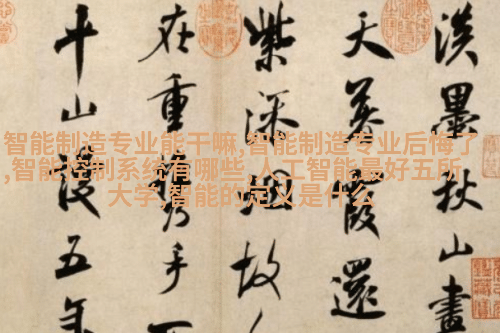 淡墨秋山畫
天暮霞還
紫深烟故
在重携手
年山謾五年
智能制造专业能干嘛,智能制造专业后悔了
,智能控制系统有哪些,人工智能最好五所
大学,智能的定义是什么